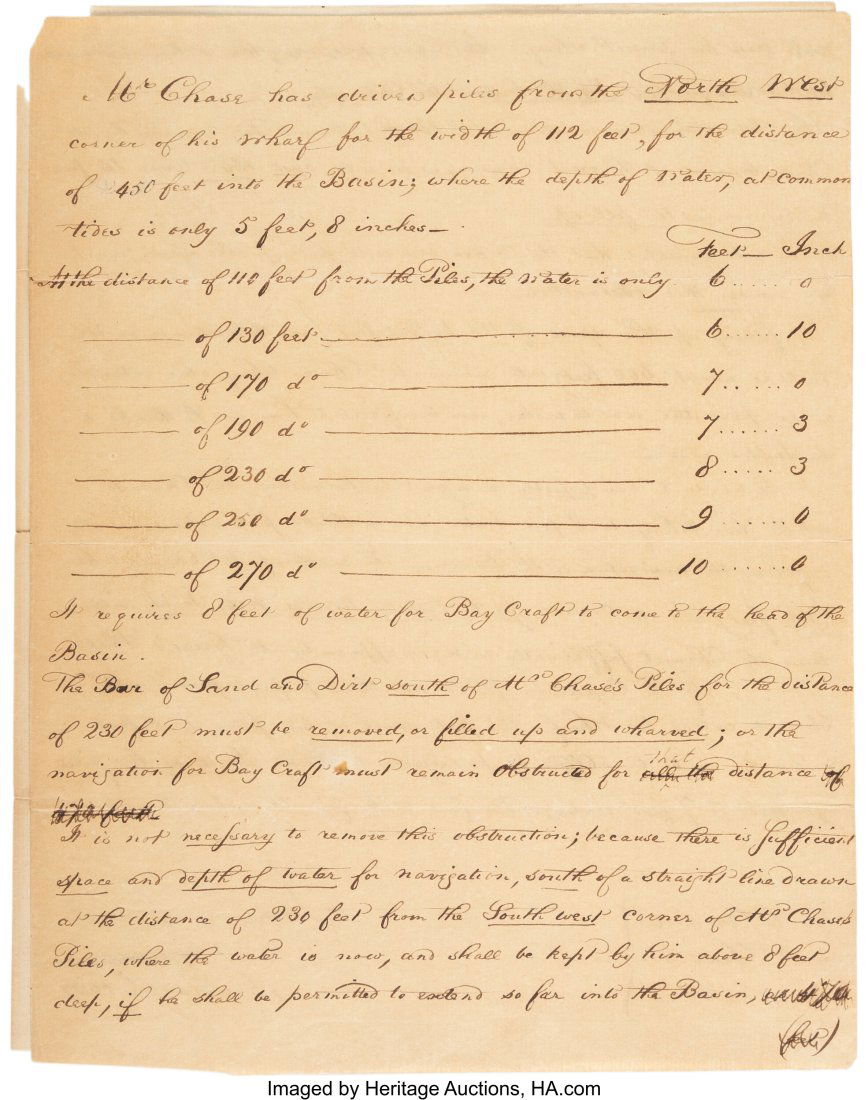 Mr Chase has driven piles from the North West
corner of his Wharf for the width of 112 feet, for the distance
of 450 feet into the Basin; where the depth of Water, at common
tides is only 5 feet, 8 inches —
Feet — Inch
At the distance of 110 feet from the Piles, the Water is only 6 ...... 0
——— of 130 feet ——— 6 ...... 10
——— of 170 do ——— 7 ...... 0
——— of 190 do ——— 7 ...... 3
——— of 230 do ——— 8 ...... 3
——— of 250 do ——— 9 ...... 0
——— of 270 do ——— 10 ...... 0
It requires 8 feet of water for Bay Craft to come to the head of the
Basin.
The Bar of Sand and Dirt south of Mr Chase's Piles for the distance
of 230 feet must be removed, or filled up and wharved; or the
navigation for Bay Craft must remain obstructed for that distance of
It is not necessary to remove this obstruction; because there is sufficient
space and depth of water for navigation, south of a straight line drawn
at the distance of 230 feet from the South west corner of Mr Chase's
Piles, where the water is now, and shall be kept by him above 8 feet
deep, if he shall be permitted to extend so far into the Basin,
Imaged by Heritage Auctions, HA.com